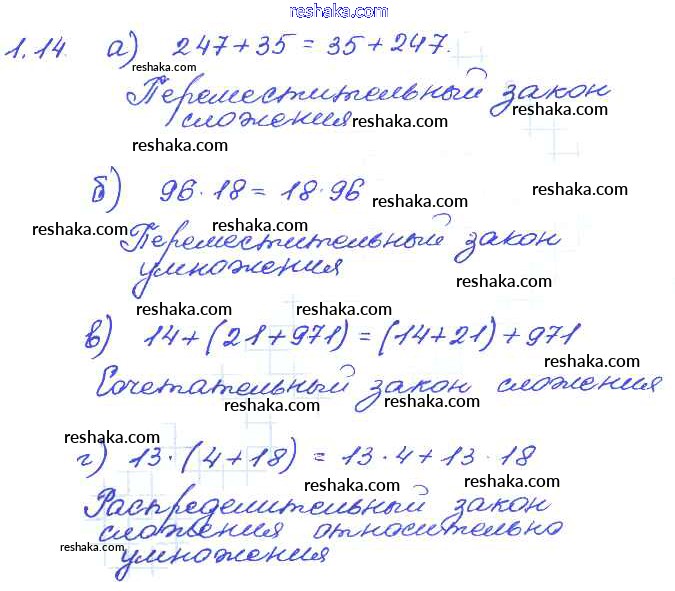 reshaka.com
reshaka.com
1.14. а) 247 + 35 = 35 + 247.
reshaka.com
Переместительный закон
reshaka.com
сложения reshaka.com
reshaka.com
б) 96 · 18 = 18 · 96
reshaka.com reshaka.com
reshaka.com reshaka.com
Переместительный закон
умножения
reshaka.com
reshaka.com reshaka.com
в) 14 + (21 + 971) = (14 + 21) + 971
reshaka.com
Сочетательный закон сложения
reshaka.com reshaka.com
reshaka.com
г) 13 · (4 + 18) = 13 · 4 + 13 · 18
reshaka.com reshaka.com
Распределительный закон
сложения относительно
reshaka.com reshaka.com
умножения